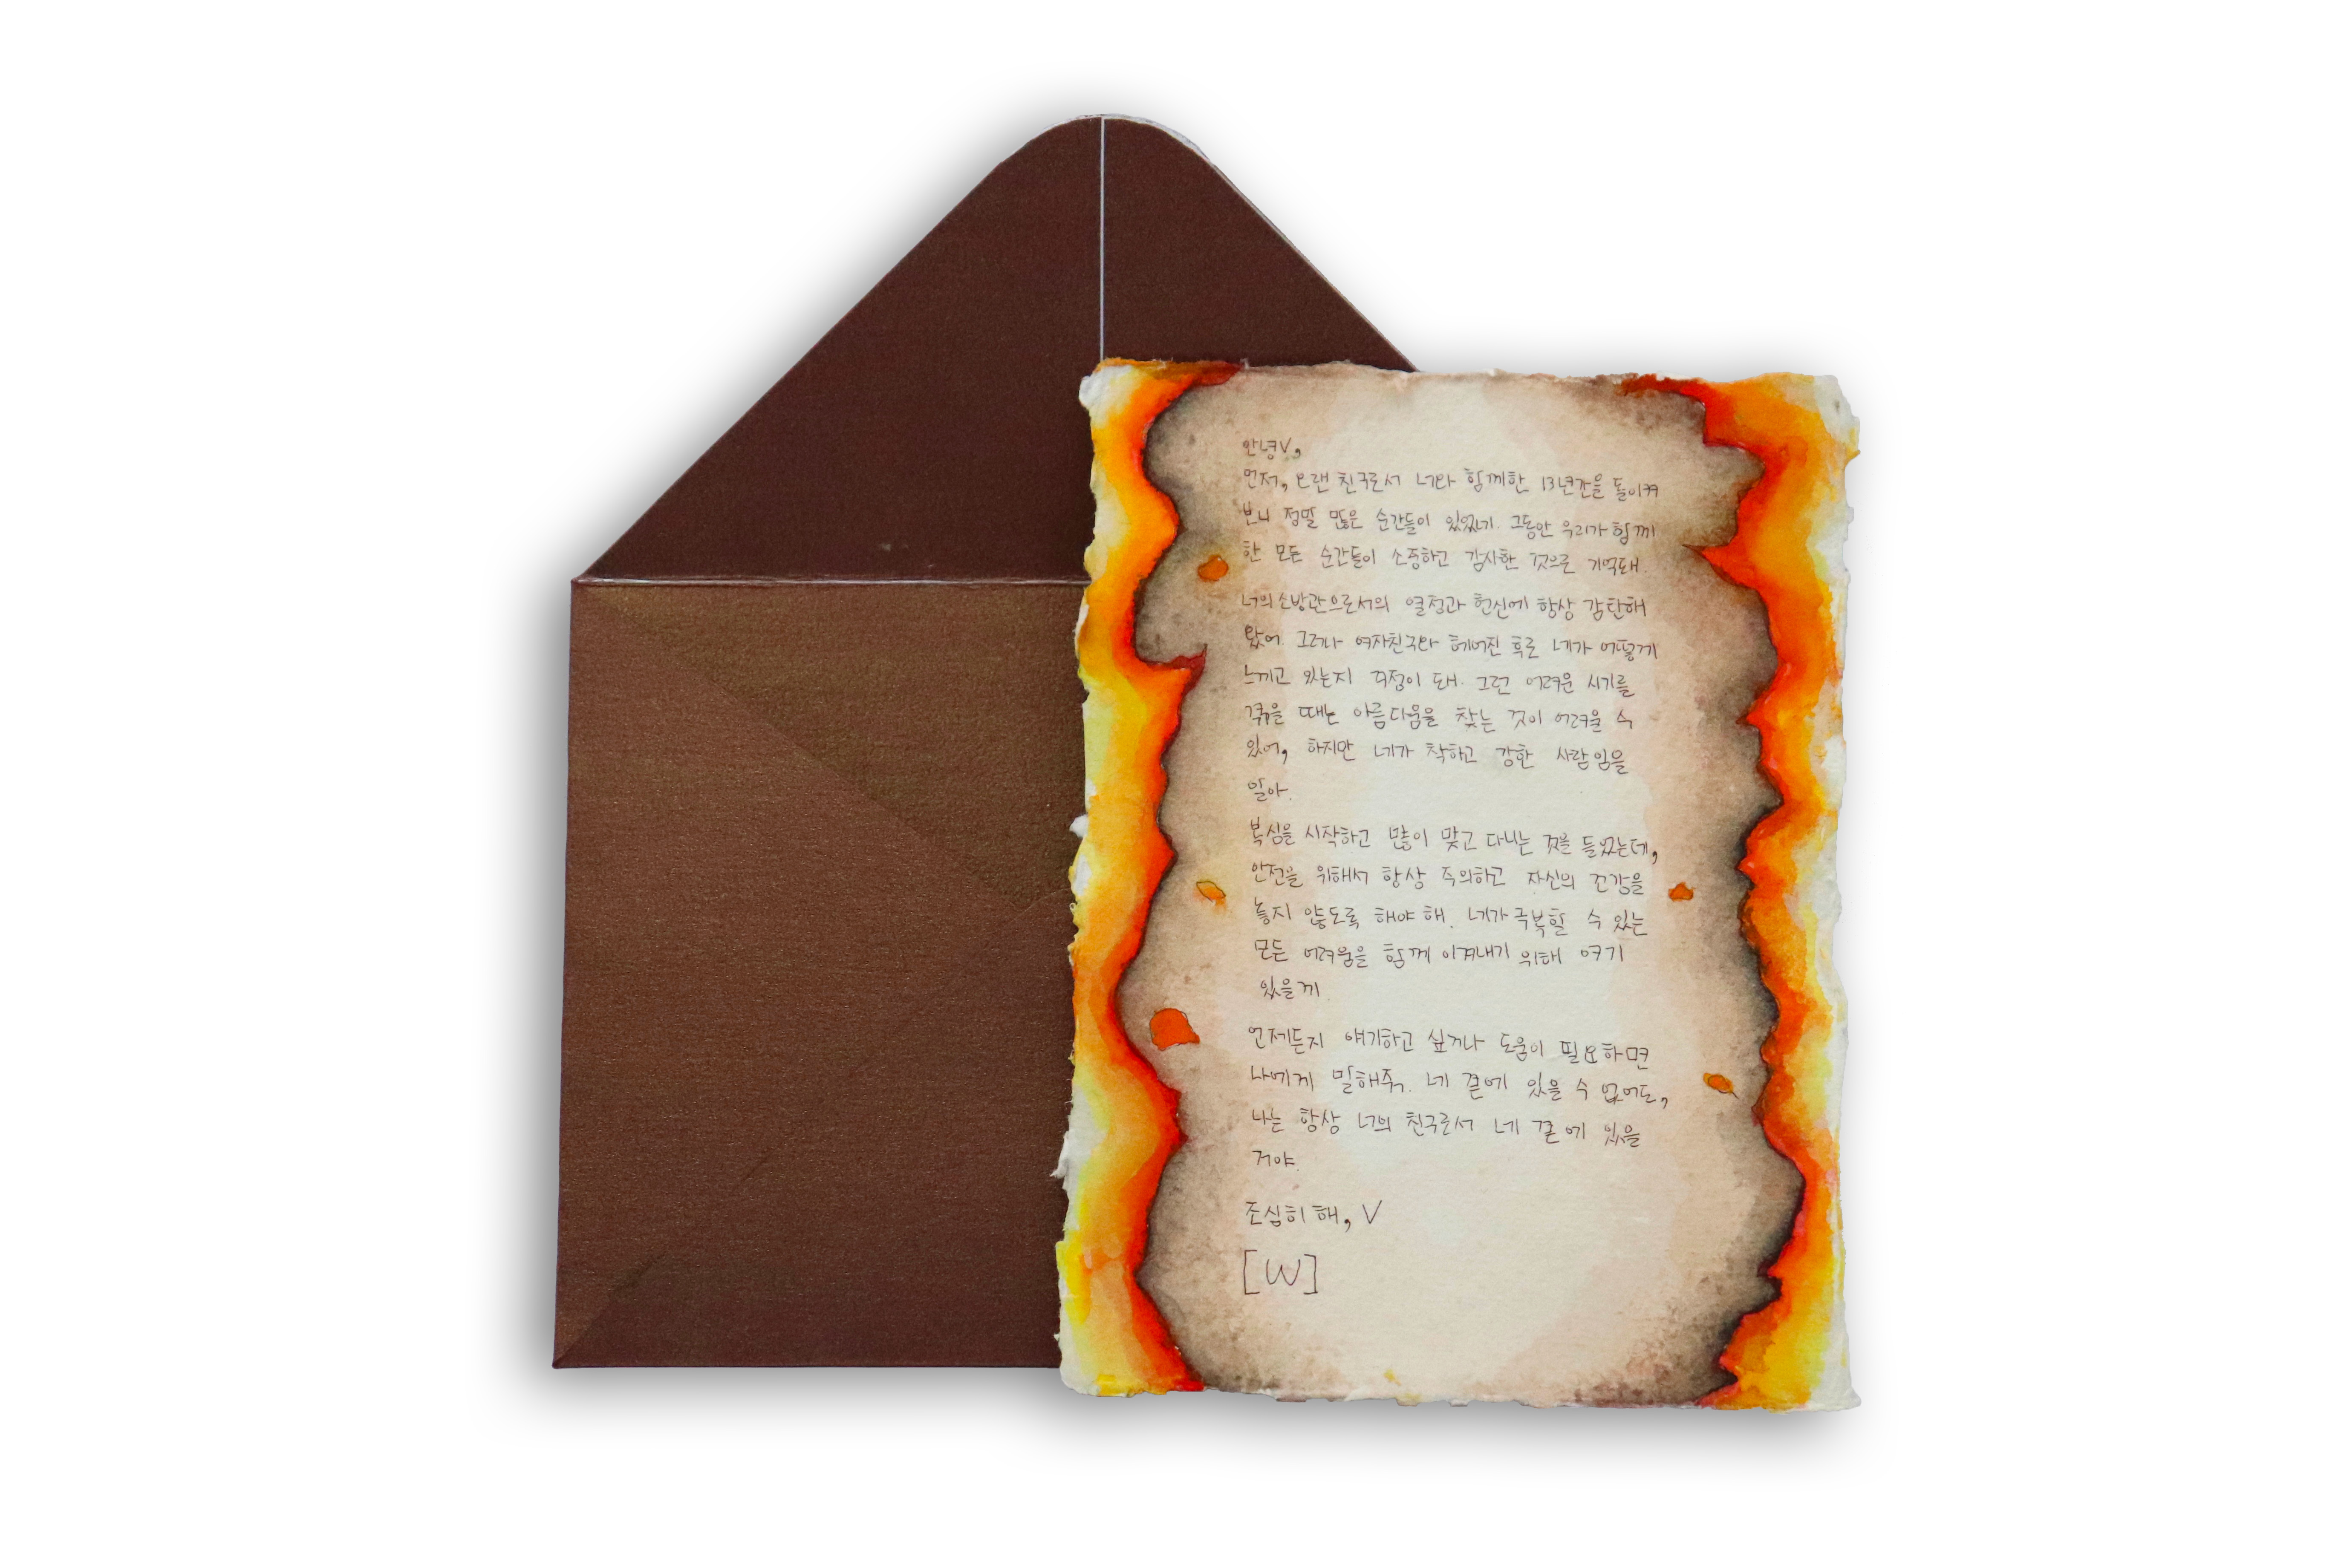 안녕 V,
먼저, 오랜 친구로서 너와 함께한 13년간을 돌이켜
보니 정말 많은 순간들이 있었기. 그동안 우리가 함께
한 모든 순간들이 소중하고 감사한 것으로 기억돼.
너의 소방관으로서의 열정과 헌신에 항상 감탄해
왔어. 그러나 여자친구와 헤어진 후로 네가 어떻게
느끼고 있는지 걱정이 돼. 그런 어려운 시기를
겪을 때는 아름다움을 찾는 것이 어려울 수
있어, 하지만 네가 착하고 강한 사람임을
알아.
복싱을 시작하고 많이 맞고 다니는 것을 들었는데,
안전을 위해서 항상 주의하고 자신의 건강을
놓지 않도록 해야 해. 네가 극복할 수 있는
모든 어려움을 함께 이겨내기 위해 여기
있을게.
언제든지 얘기하고 싶거나 도움이 필요하면
나에게 말해줘. 네 곁에 있을 수 없어도,
나는 항상 너의 친구로서 네 곁에 있을
거야.
조심히 해, V
[W]